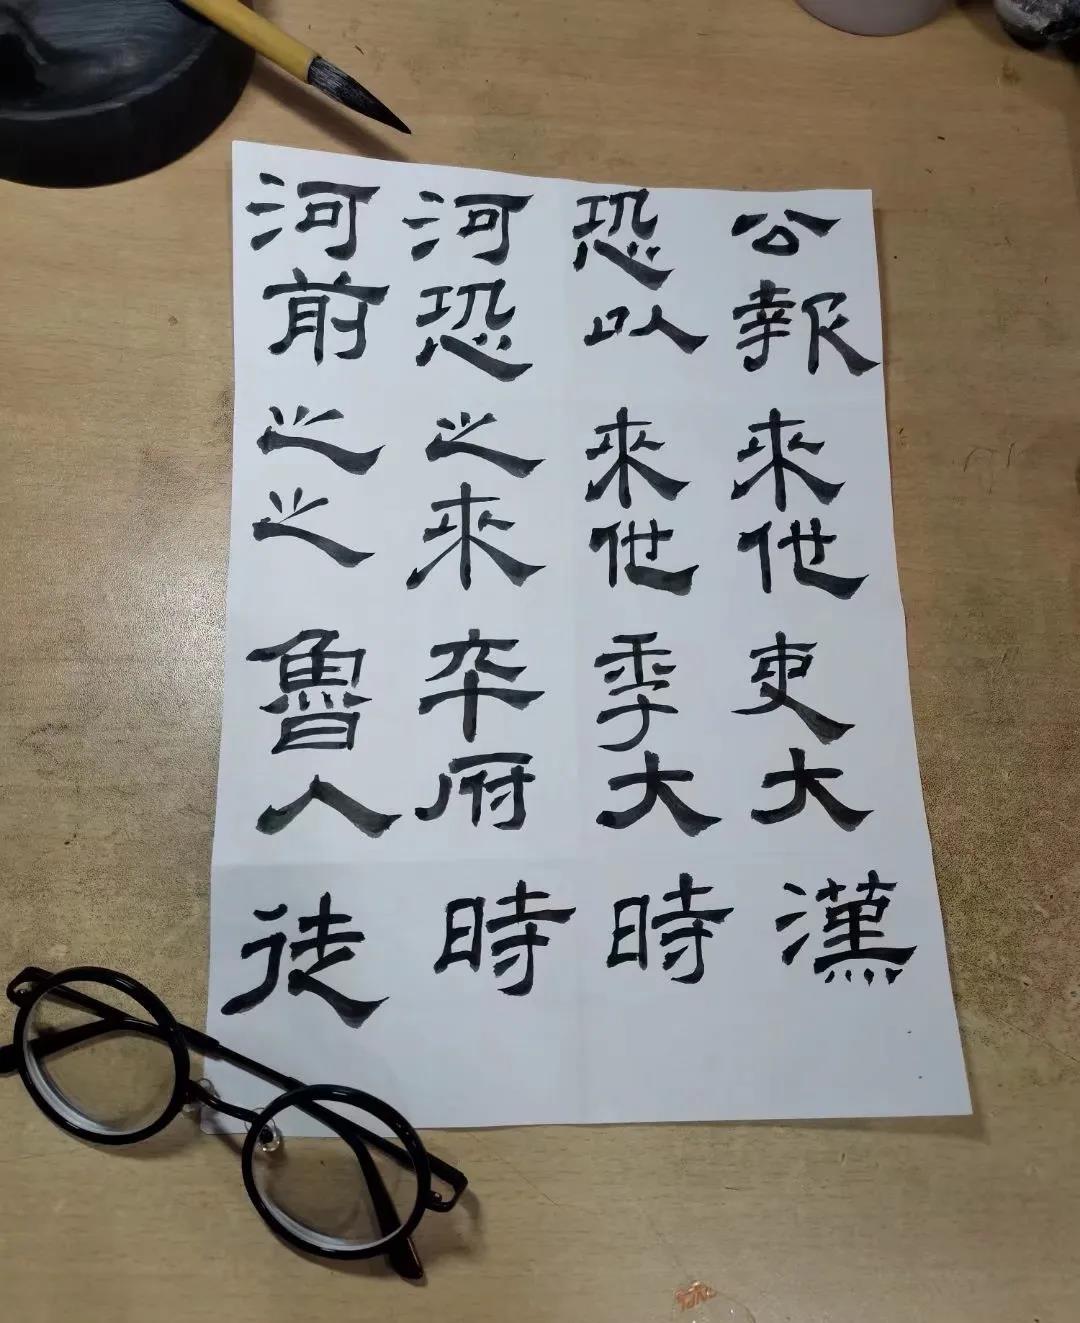 公報來他吏大漢
恐以來他季大時
河恐之來卒府時
河前之之魯人徒